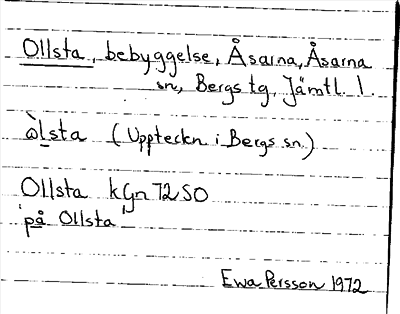 Ollsta, bebyggelse, Åsarna, Åsarna
sn, Bergs tg, Jämtl. l.
òlsta (Uppteckn. i Bergs sn.)
Ollsta kGn 72 SO
'på Ollsta'
Ewa Persson 1972